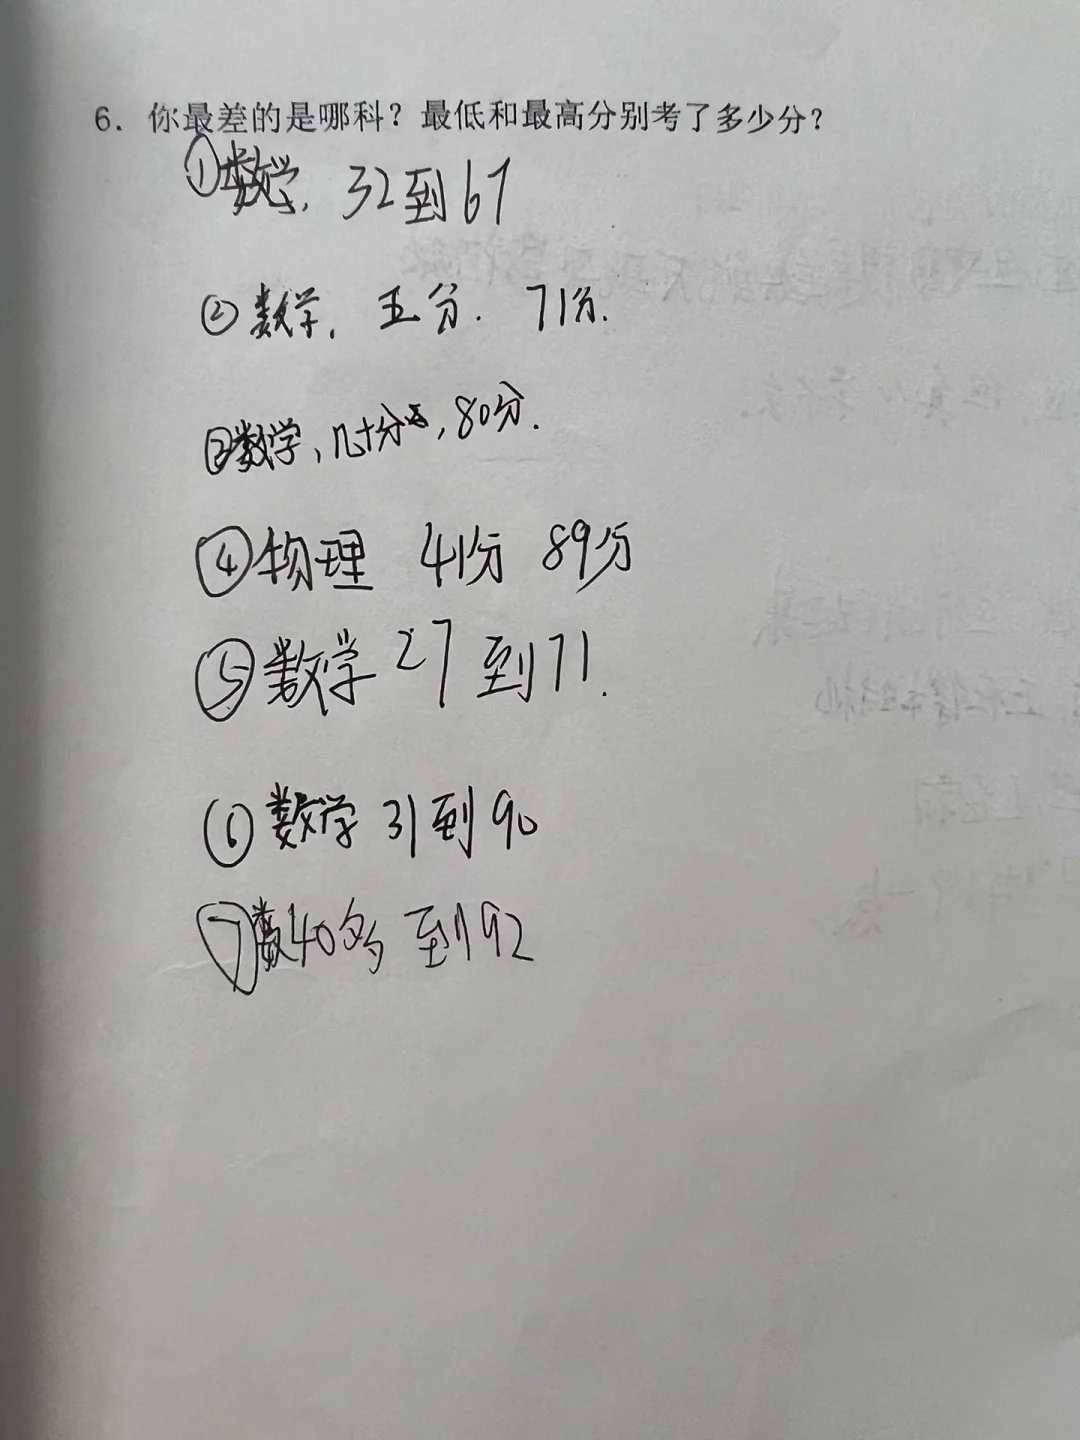 6. 你最差的是哪科？最低和最高分别考了多少分？
①数学，32到67
②数学，五分．71分．
③数学，几十分，80分．
④物理 41分 89分
⑤数学 27到71．
⑥数学 31到90
⑦数40多到92